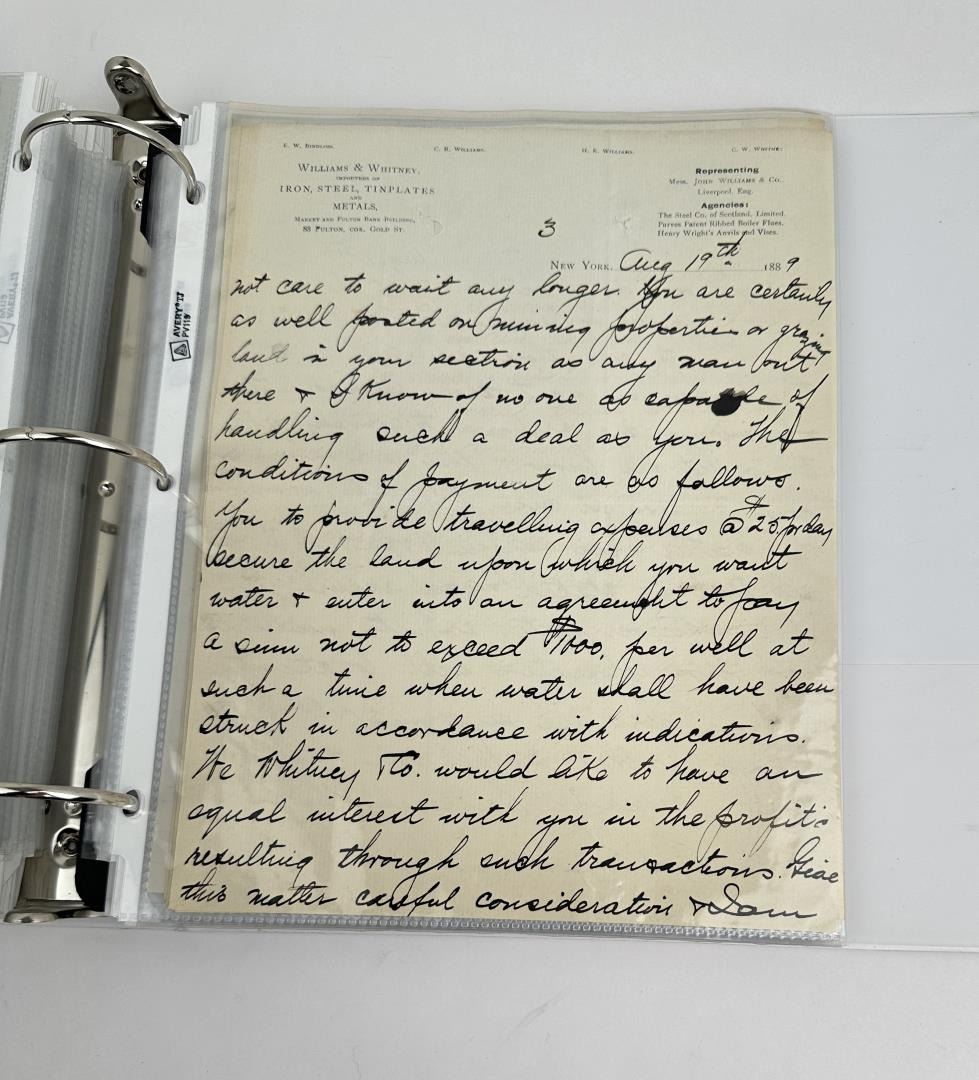 E. W. BINDLOSS. C. R. WILLIAMS. H. E. WILLIAMS. C. W. WHITNEY
WILLIAMS & WHITNEY,
IMPORTERS OF
IRON, STEEL, TINPLATES
AND
METALS,
MARKET AND FULTON BANK BUILDING,
83 FULTON, COR. GOLD ST.
Representing
Mess. JOHN WILLIAMS & Co.,
Liverpool, Eng.
Agencies:
The Steel Co. of Scotland, Limited.
Purves Patent Ribbed Boiler Flues.
Henry Wright's Anvils and Vises.
3
NEW YORK, Aug 19th 1889
not care to wait any longer. You are certainly
as well posted on mining properties or grazing
land in your section as any man out
there & I know of no one as capable of
handling such a deal as you. The
conditions of payment are as follows.
You to provide travelling expenses @ $25 pr day
secure the land upon which you want
water & enter into an agreement to pay
a sum not to exceed $1000. per well at
such a time when water shall have been
struck in accordance with indications.
We Whitney & Co. would like to have an
equal interest with you in the profits
resulting through such transactions. Give
this matter careful consideration & I am
AVERY®
PV119